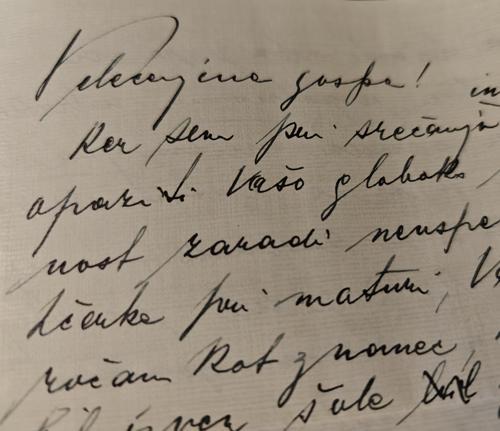 Velecenjena gospa!
Ker sem pri srečanju
opazil Vašo globok
nost zaradi neuspe
hčerke pri maturi, V
ročam kot znanec,
šole